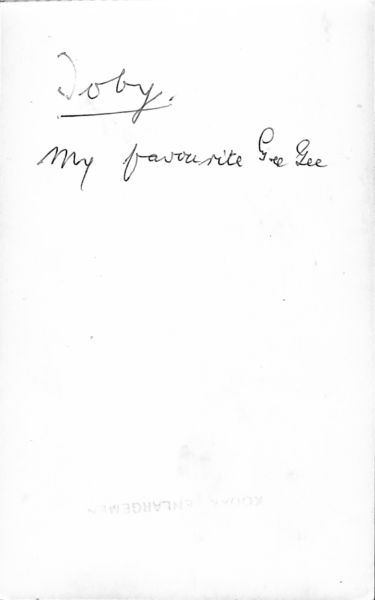 Toby.
My favourite Gee Gee
KODAK ENLARGEMEN